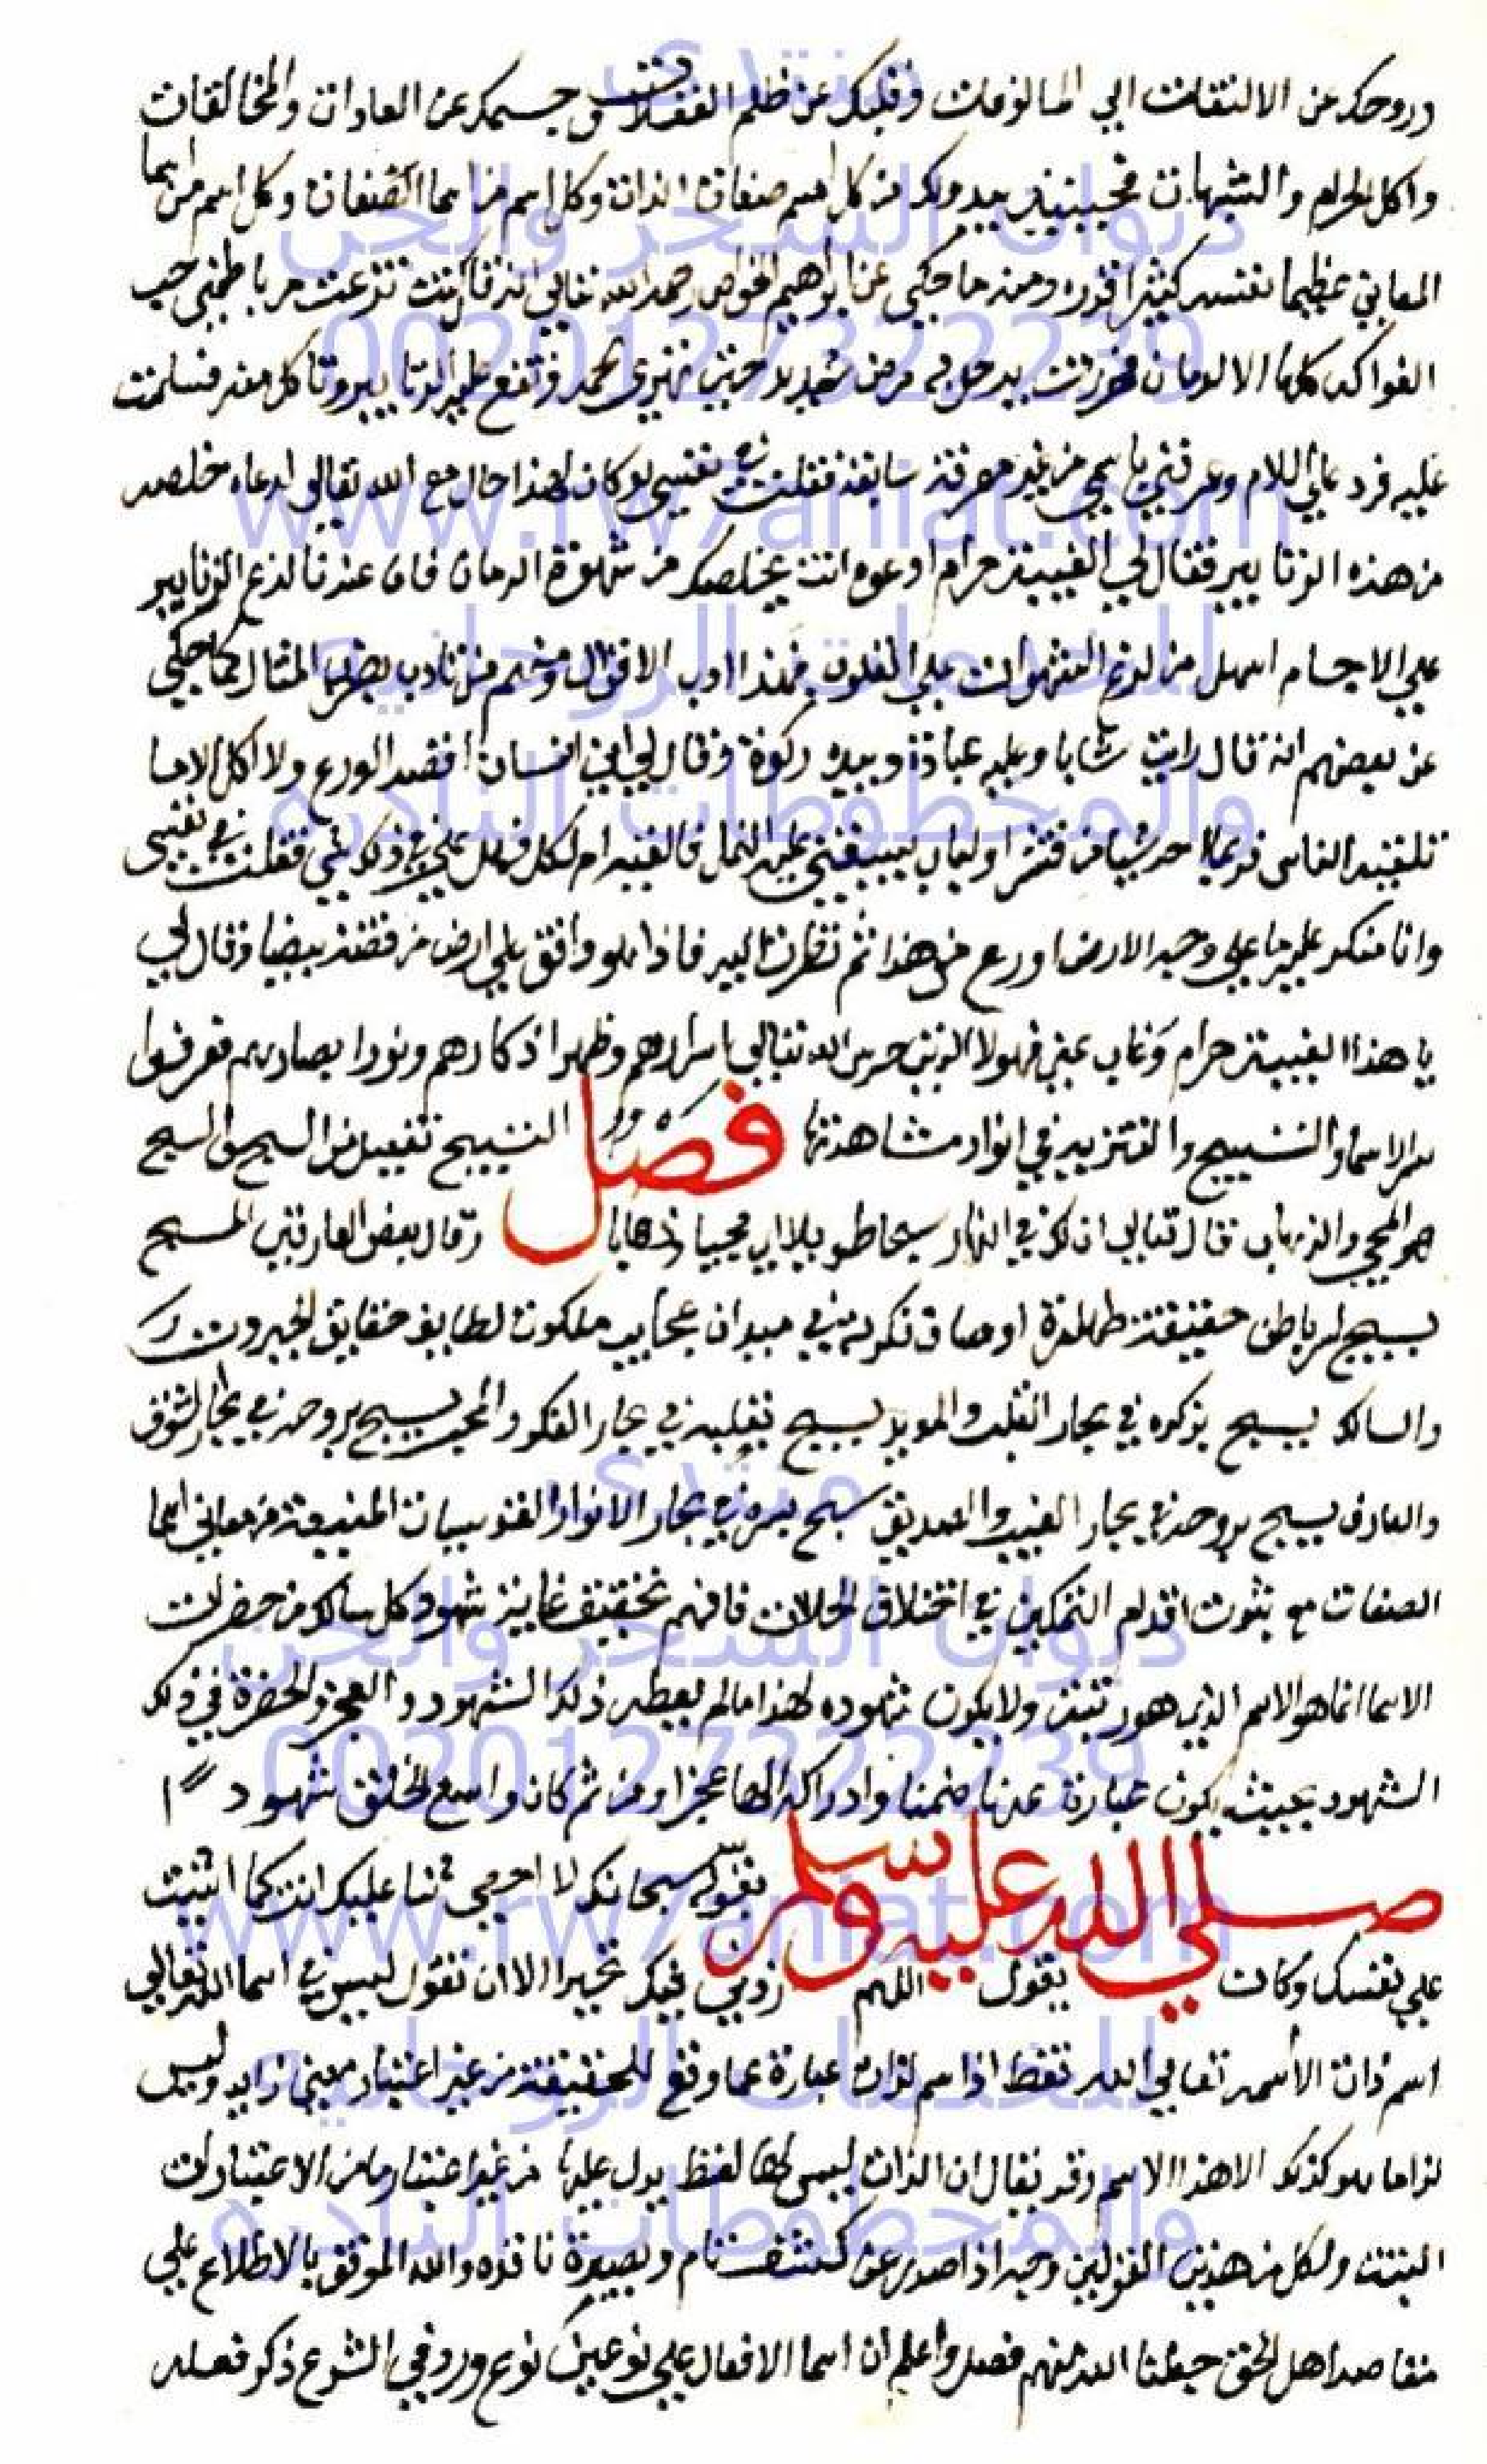 وروحك عن الالتفات الي المالوفات وقلبك عن ظلم الغفلات وجسمك عن العادات والمخالفات
واكل الحرام والشبهات فحينيذ يبدو لك من كل اسم صفات الذات وكل اسم من اسما الصفات وكل اسم من اسما
المعاني عظيما نفسه كثيرا قدره ومنه ما حكي عن ابراهيم الخواص رحمه الله تعالى انه قال كنت نزعت من باطني حب
الفواكه كلها الا الرمان فمررت برجل به مرض شديد تقع عليه الزنابير وتاكل منه فسلمت
عليه فرد علي السلام وعرفني باسمي من غير معرفة سابقة فقلت في نفسي لو كان لهذا حال مع الله تعالى لدعاه خلصه
من هذه الزنابير فقال لي الغيبة حرام ادعوه انت يخلصك من شهوة الرمان فان عندنا لذع الزنابير
علي الاجسام اسهل من لذع الشهوات علي القلوب فهذا ادب الاقوال ومنهم من تادب بضرب المثال كما حكي
عن بعضهم انه قال رايت شابا وعليه عباة وبيده ركوة وقال لي اني انسان اقصد الورع ولا اكل الا ما
تلقيه الناس فربما اجد شيا من قشر اولباب ليسبقني عليه النمل فالقيه ام اكل فهل علي في ذلك شي فقلت في نفسي
وانا منكر عليه ما علي وجه الارض اورع من هذا ثم نظرت اليه فاذا هو واقف علي ارض من فضة بيضا وقال لي
يا هذا الغيبة حرام وغاب عني فهولا الذين حرس الله تعالى اسرارهم وطهر اذكارهم ونور ابصارهم فعرفوا
سر الاسما والتسبيح والتنزيه في انوار مشاهدتها فصل التسبيح تفعيل من السبح والسبح
هو المجي والذهاب قال تعالى ان لك في النهار سبحا طويلا اي مجيا وذهابا وقال بعض العارفين المسبح
يسبح في باطن حقيقة طهارة اوصاف فكرته في ميدان عجايب ملكوت لطايف حقايق الجبروت
والسالك يسبح بذكره في بحار القلب والمريد يسبح بقلبه في بحار الفكر والمحب يسبح بروحه في بحار الشوق
والعارف يسبح بروحه في بحار الغيب والصديق يسبح بسره في بحار الانوار القدوسيات المنبعثة من معاني اسما
الصفات مع ثبوت اقدام التمكين في اختلاف الحلات فافهم تحقيق غاية شهود كل سالك من حضرات
الاسما انما هو الاسم الذي هو رتبته ولا يكون شهوده لهذا ما لم يعطه ذلك الشهود والعجز والحضرة في ذلك
الشهود بحيث يكون عبارة عنها ضمنا وادراك لها عجزا ومن ثم كان واسع الخلق شهودا
صلي الله عليه وسلم بقوله سبحانك لا احصي ثنا عليك انت كما اثنيت
علي نفسك وكان يقول اللهم زدني فيك تحيرا الا ان نقول ليس في اسما الله تعالى
اسم ذات الا اسمه تعالى الله فقط اذ اسم الذات عبارة عما وقع للحقيقة من غير اعتبار معنى زايد وليس
لذاما هو كذلك الا هذا الاسم وقد يقال ان الذات ليس لها لفظ يدل عليها من غير اعتبار ما من الاعتبارات
البتة ولكل من هذين القولين وجه اذا صدر عن كشف تام وبصيرة نافذه والله الموفق بالاطلاع علي
مقاصد اهل الحق جعلنا الله منهم فصل واعلم ان اسما الافعال علي نوعين نوع ورد في الشرع ذكر فعله
منتدى
ديوان السحر والجن
00201273222239
www.rw7aniat.com
للخدمات الروحانيه
والمخطوطات النادره
منتدى
ديوان السحر والجن
00201273222239
www.rw7aniat.com
للخدمات الروحانيه
والمخطوطات النادره